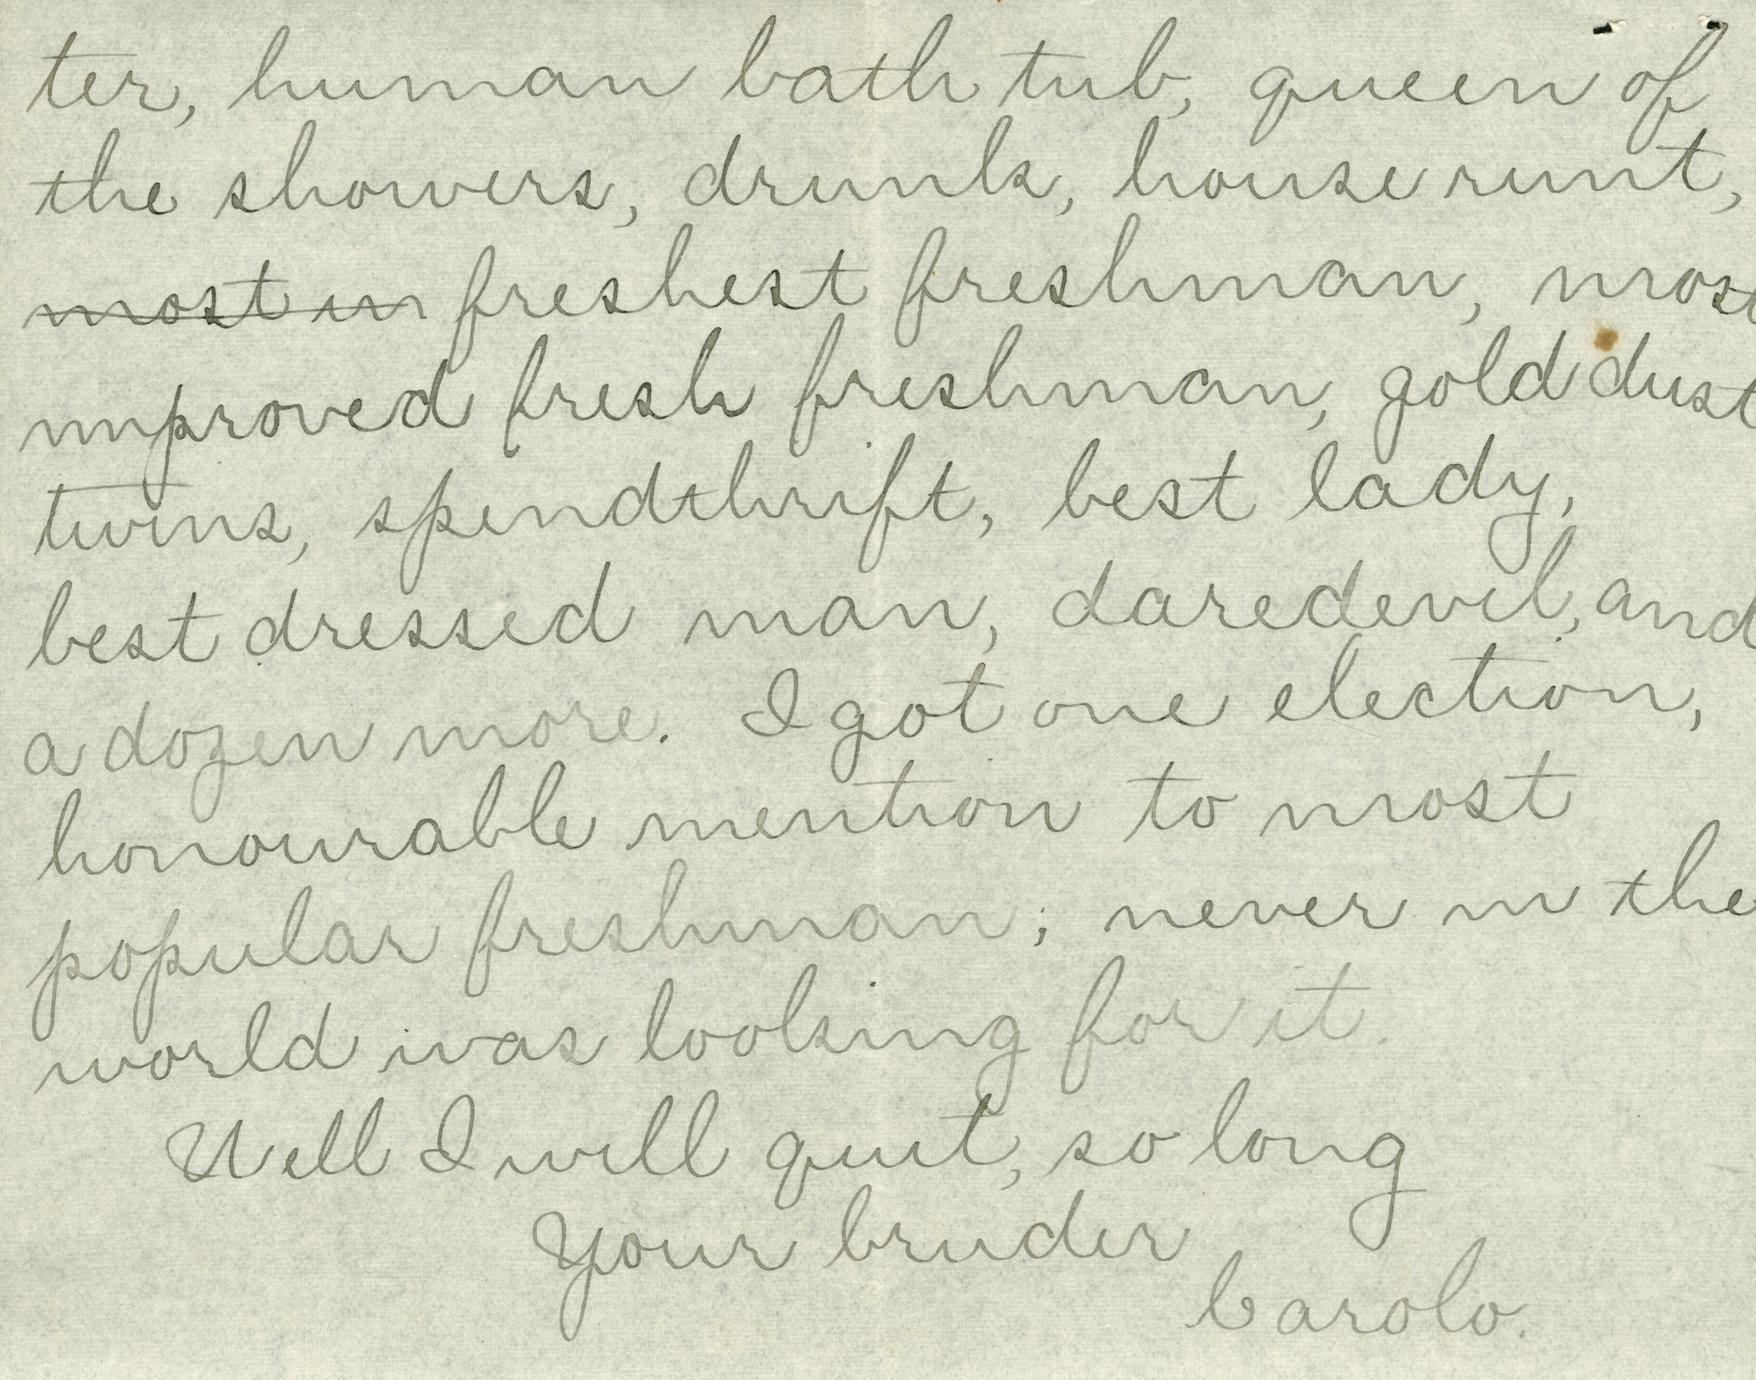 ter, human bath tub, queen of
the showers, drunk, house runt,
~~most im~~ freshest freshman, most
improved fresh freshman, gold dust
twins, spendthrift, best lady,
best dressed man, daredevil, and
a dozen more. I got one election,
honourable mention to most
popular freshman; never in the
world was looking for it.
Well I will quit, so long
Your bruder
Carolo.